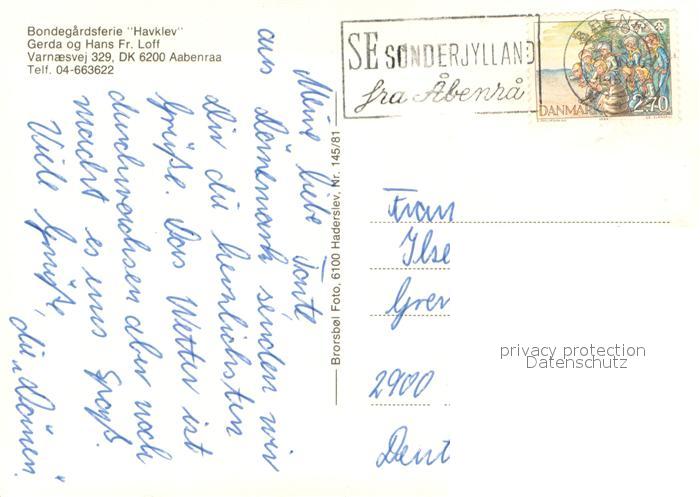 Bondegårdsferie "Havklev"
Gerda og Hans Fr. Loff
Varnæsvej 329, DK 6200 Aabenraa
Telf. 04-663622
SE SØNDERJYLLAND
fra Åbenrå
ÅBENRÅ
DANMARK
2.70
Meine liebe Tante
aus Dänemark senden wir
Dir die herzlichsten
Grüße. Das Wetter ist
durchwachsen aber noch
macht es uns Spaß.
Viele Grüße
die „Dänen“
Brorsbøl Foto, 6100 Haderslev, Nr. 145/81
Frau
Ilse
Grev
2900
privacy protection
Datenschutz